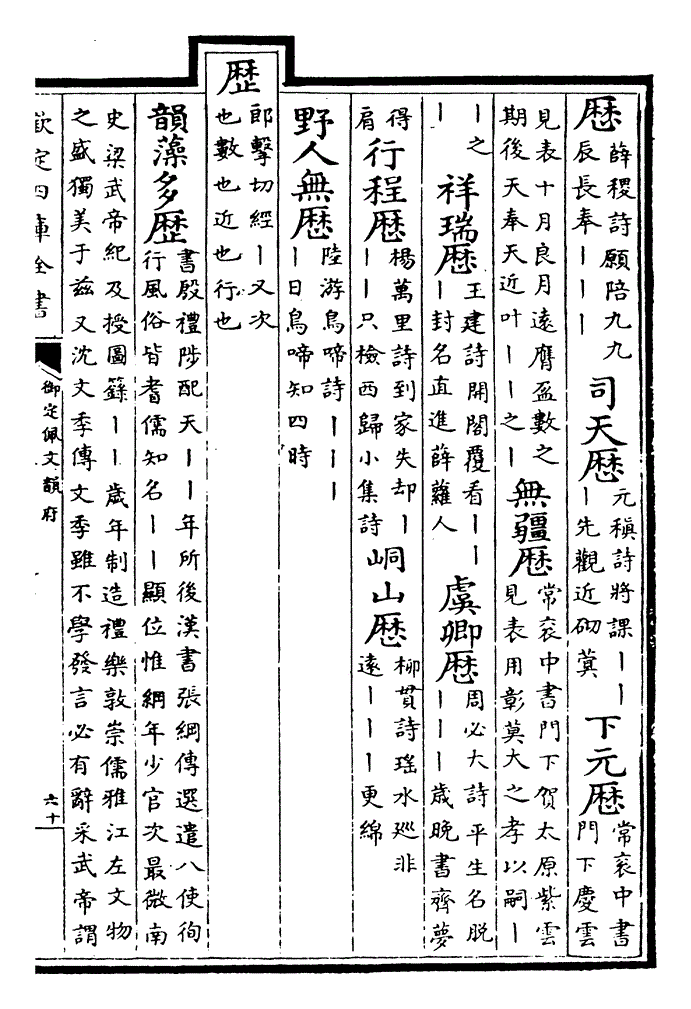 厯
薛稷詩願陪九九
辰長奉｜｜｜
司天厯
元稹詩將課｜｜
｜先觀近砌蓂
下元厯
常衮中書
門下慶雲
見表十月良月遠膺盈數之
期後天奉天近叶｜｜之｜
無疆厯
常衮中書門下賀太原紫雲
見表用彰莫大之孝以嗣｜
｜之
｜
祥瑞厯
王建詩開閣覆看｜｜
｜封名直進薛蘿人
虞卿厯
周必大詩平生名脱
｜｜｜歲晚書齊夢
得
肩
行程厯
楊萬里詩到家失却｜
｜｜只檢西歸小集詩
峒山厯
柳貫詩瑤水廵非
遠｜｜｜更綿
野人無厯
陸游鳥啼詩｜｜｜
｜日鳥啼知四時
歷
郎擊切經｜又次
也數也近也行也
韻藻多歷
書殷禮陟配天｜｜年所後漢書張綱傳選遣八使徇
行風俗皆耆儒知名｜｜顯位惟綱年少官次最微南
史梁武帝紀及授圖籙｜｜歲年制造禮樂敦崇儒雅江左文物
之盛獨美于兹又沈文季傳文季雖不學發言必有辭采武帝謂
欽定四庫全書
御定佩文韻府
六十